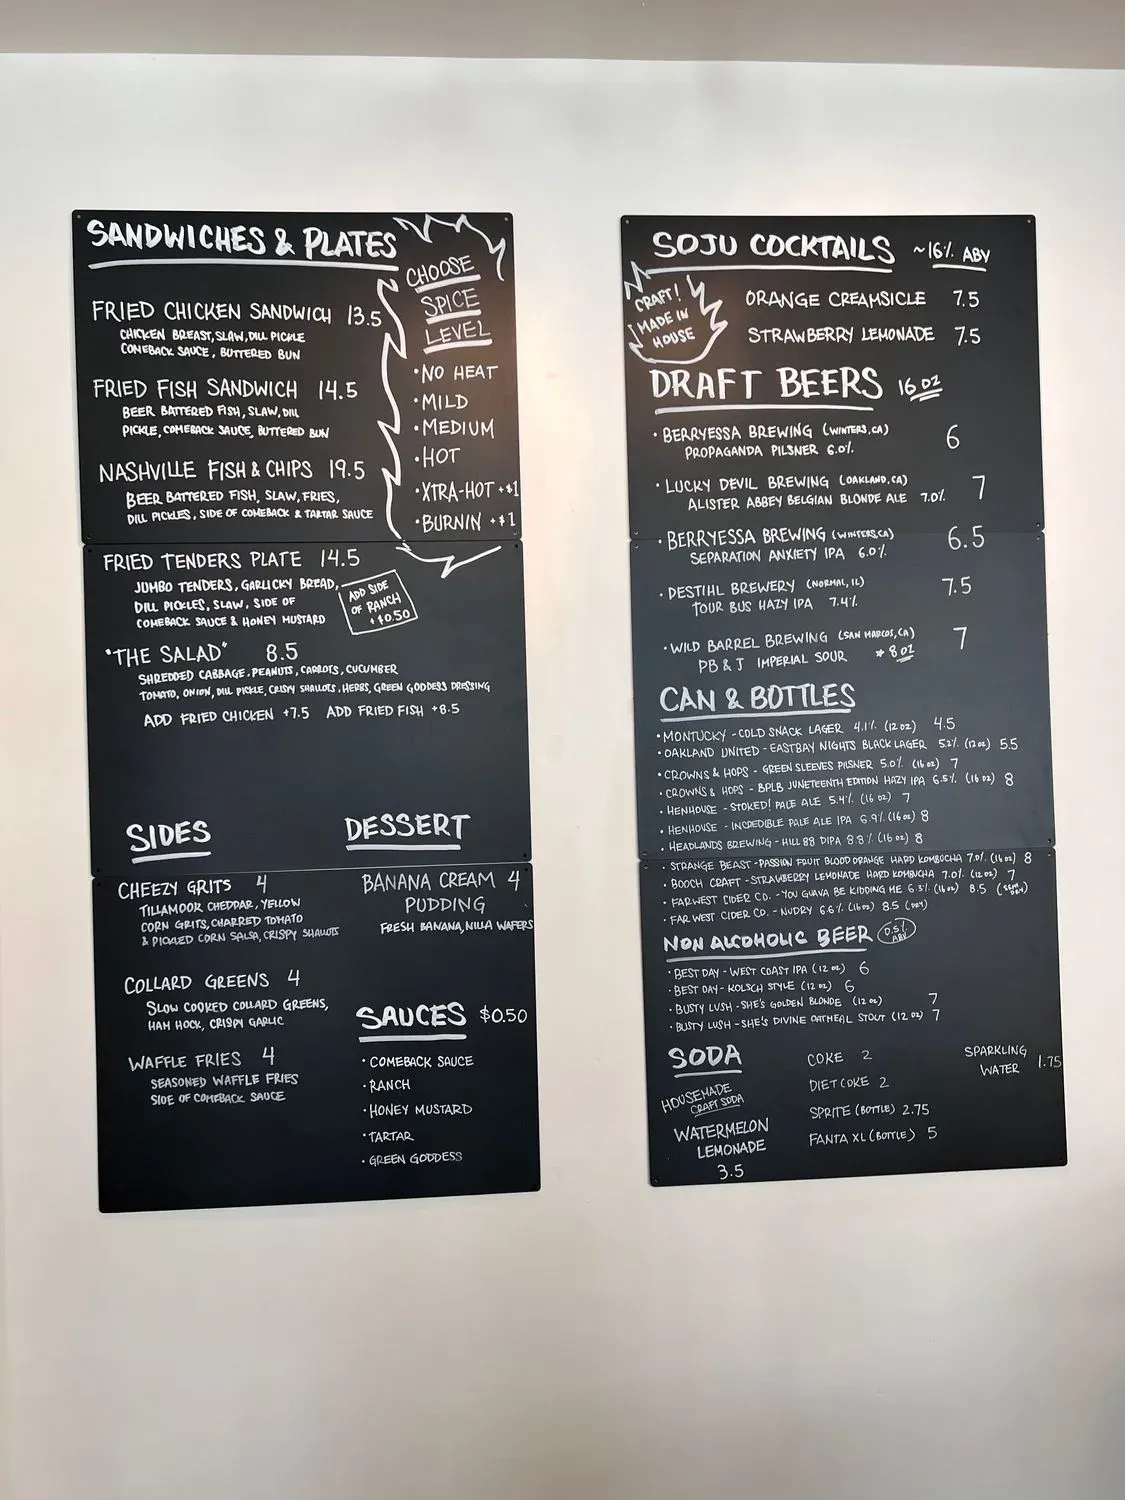 SANDWICHES & PLATES
FRIED CHICKEN SANDWICH 13.5
CHICKEN BREAST, SLAW, DILL PICKLE
COMEBACK SAUCE, BUTTERED BUN
FRIED FISH SANDWICH 14.5
BEER BATTERED FISH, SLAW, DILL
PICKLE, COMEBACK SAUCE, BUTTERED BUN
NASHVILLE FISH & CHIPS 19.5
BEER BATTERED FISH, SLAW, FRIES,
DILL PICKLES, SIDE OF COMEBACK & TARTAR SAUCE
CHOOSE
SPICE
LEVEL
• NO HEAT
• MILD
• MEDIUM
• HOT
• XTRA-HOT +$1
• BURNIN +$1
FRIED TENDERS PLATE 14.5
JUMBO TENDERS, GARLICKY BREAD,
DILL PICKLES, SLAW, SIDE OF
COMEBACK SAUCE & HONEY MUSTARD
ADD SIDE
OF RANCH
+$0.50
"THE SALAD" 8.5
SHREDDED CABBAGE, PEANUTS, CARROTS, CUCUMBER
TOMATO, ONION, DILL PICKLE, CRISPY SHALLOTS, HERBS, GREEN GODDESS DRESSING
ADD FRIED CHICKEN +7.5 ADD FRIED FISH +8.5
SIDES
CHEEZY GRITS 4
TILLAMOOK CHEDDAR, YELLOW
CORN GRITS, CHARRED TOMATO
& PICKLED CORN SALSA, CRISPY SHALLOTS
COLLARD GREENS 4
SLOW COOKED COLLARD GREENS,
HAM HOCK, CRISPY GARLIC
WAFFLE FRIES 4
SEASONED WAFFLE FRIES
SIDE OF COMEBACK SAUCE
DESSERT
BANANA CREAM 4
PUDDING
FRESH BANANA, NILLA WAFERS
SAUCES $0.50
• COMEBACK SAUCE
• RANCH
• HONEY MUSTARD
• TARTAR
• GREEN GODDESS
SOJU COCKTAILS ~16% ABV
CRAFT!
MADE IN
HOUSE
ORANGE CREAMSICLE 7.5
STRAWBERRY LEMONADE 7.5
DRAFT BEERS 16 OZ
• BERRYESSA BREWING (WINTERS, CA) 6
PROPAGANDA PILSNER 6.0%
• LUCKY DEVIL BREWING (OAKLAND, CA) 7
ALISTER ABBEY BELGIAN BLONDE ALE 7.0%
• BERRYESSA BREWING (WINTERS, CA) 6.5
SEPARATION ANXIETY IPA 6.0%
• DESTIHL BREWERY (NORMAL, IL) 7.5
TOUR BUS HAZY IPA 7.4%
• WILD BARREL BREWING (SAN MARCOS, CA) 7
PB & J IMPERIAL SOUR * 8 OZ
CAN & BOTTLES
• MONTUCKY - COLD SNACK LAGER 4.1% (12 OZ) 4.5
• OAKLAND UNITED - EASTBAY NIGHTS BLACK LAGER 5.2% (12 OZ) 5.5
• CROWNS & HOPS - GREEN SLEEVES PILSNER 5.0% (16 OZ) 7
• CROWNS & HOPS - BPLB JUNETEENTH EDITION HAZY IPA 6.5% (16 OZ) 8
• HENHOUSE - STOKED! PALE ALE 5.4% (16 OZ) 7
• HENHOUSE - INCREDIBLE PALE ALE IPA 6.9% (16 OZ) 8
• HEADLANDS BREWING - HILL 88 DIPA 8.8% (16 OZ) 8
• STRANGE BEAST - PASSION FRUIT BLOOD ORANGE HARD KOMBUCHA 7.0% (16 OZ) 8
• BOOCH CRAFT - STRAWBERRY LEMONADE HARD KOMBUCHA 7.0% (12 OZ) 7
• FAR WEST CIDER CO. - YOU GUAVA BE KIDDING ME 6.3% (16 OZ) 8.5 (SEMI DRY)
• FAR WEST CIDER CO. - NUDRY 6.6% (16 OZ) 8.5 (DRY)
NON ALCOHOLIC BEER 0.5% ABV
• BEST DAY - WEST COAST IPA (12 OZ) 6
• BEST DAY - KOLSCH STYLE (12 OZ) 6
• BUSTY LUSH - SHE'S GOLDEN BLONDE (12 OZ) 7
• BUSTY LUSH - SHE'S DIVINE OATMEAL STOUT (12 OZ) 7
SODA
HOUSEMADE
CRAFT SODA
WATERMELON
LEMONADE
3.5
COKE 2
DIET COKE 2
SPRITE (BOTTLE) 2.75
FANTA XL (BOTTLE) 5
SPARKLING
WATER 1.75